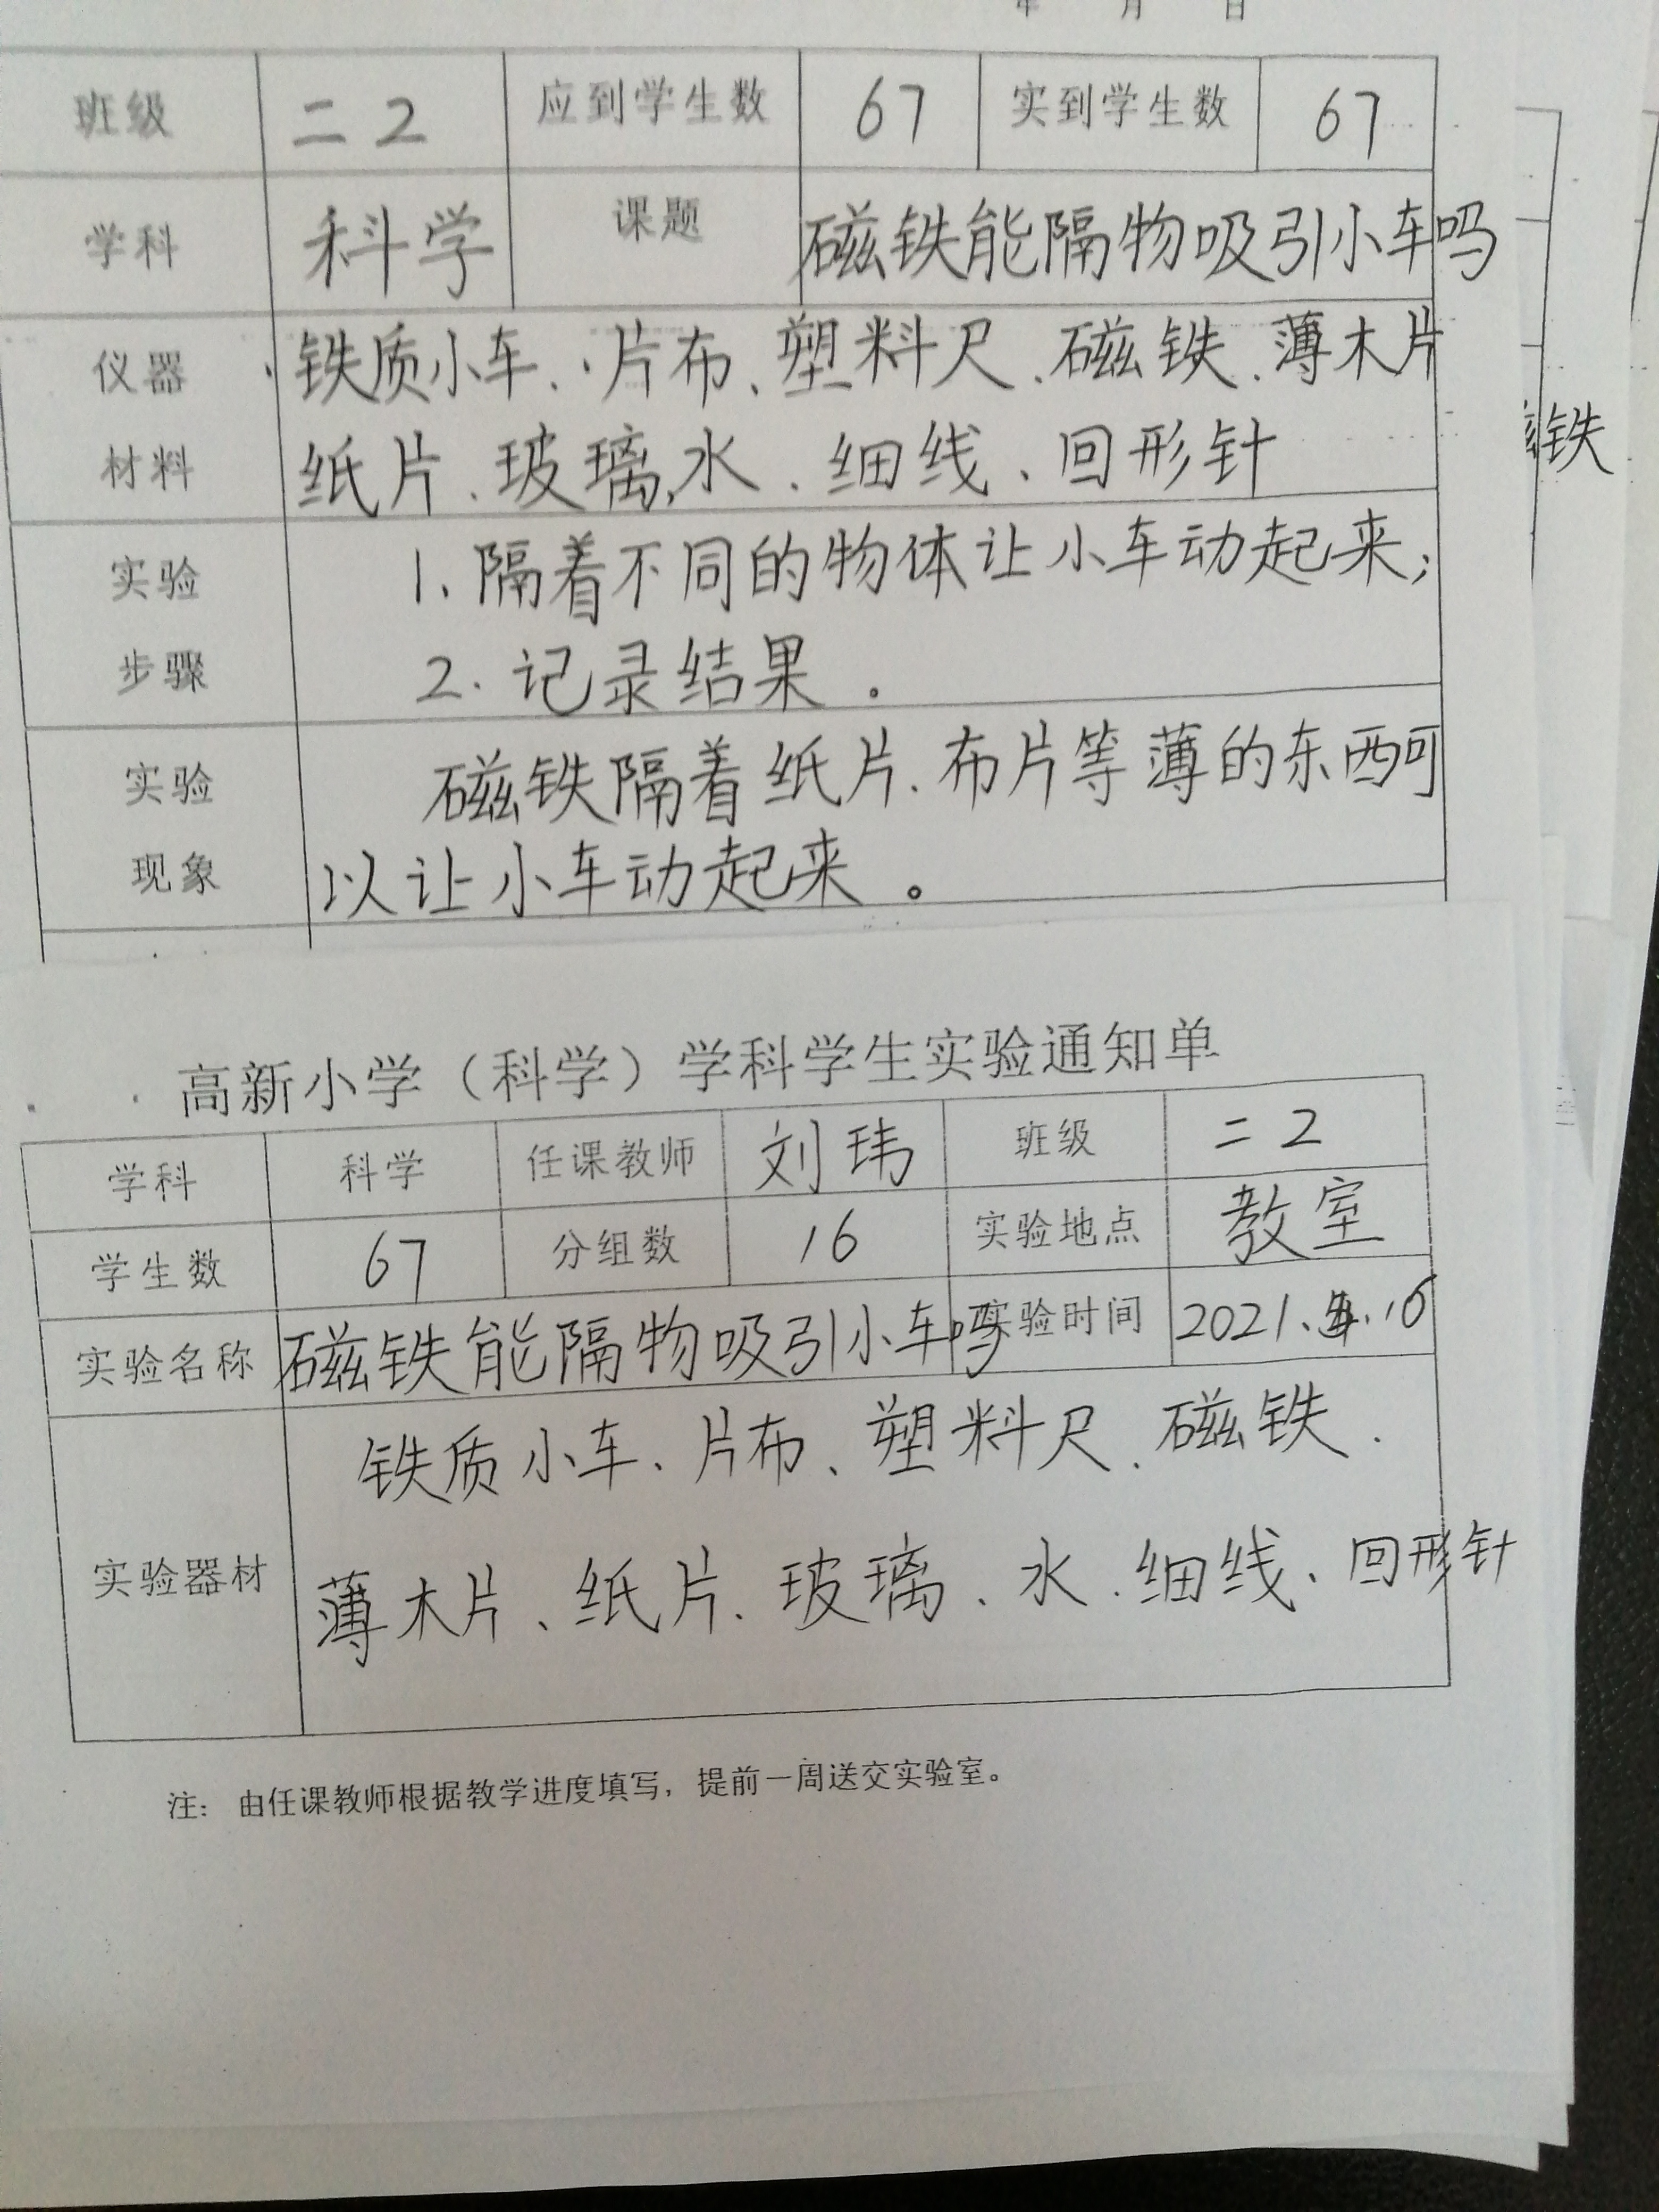 年 月 日
班级 二2 应到学生数 67 实到学生数 67
学科 科学 课题 磁铁能隔物吸引小车吗
仪器 铁质小车、片布、塑料尺、磁铁、薄木片
材料 纸片、玻璃、水、细线、回形针
实验 1.隔着不同的物体让小车动起来;
步骤 2.记录结果。
实验 磁铁隔着纸片、布片等薄的东西可
现象 以让小车动起来。
铁
高新小学（科学）学科学生实验通知单
学科 科学 任课教师 刘玮 班级 二2
学生数 67 分组数 16 实验地点 教室
实验名称 磁铁能隔物吸引小车吗 实验时间 2021.4.16
铁质小车、片布、塑料尺、磁铁、
实验器材 薄木片、纸片、玻璃、水、细线、回形针
注： 由任课教师根据教学进度填写，提前一周送交实验室。